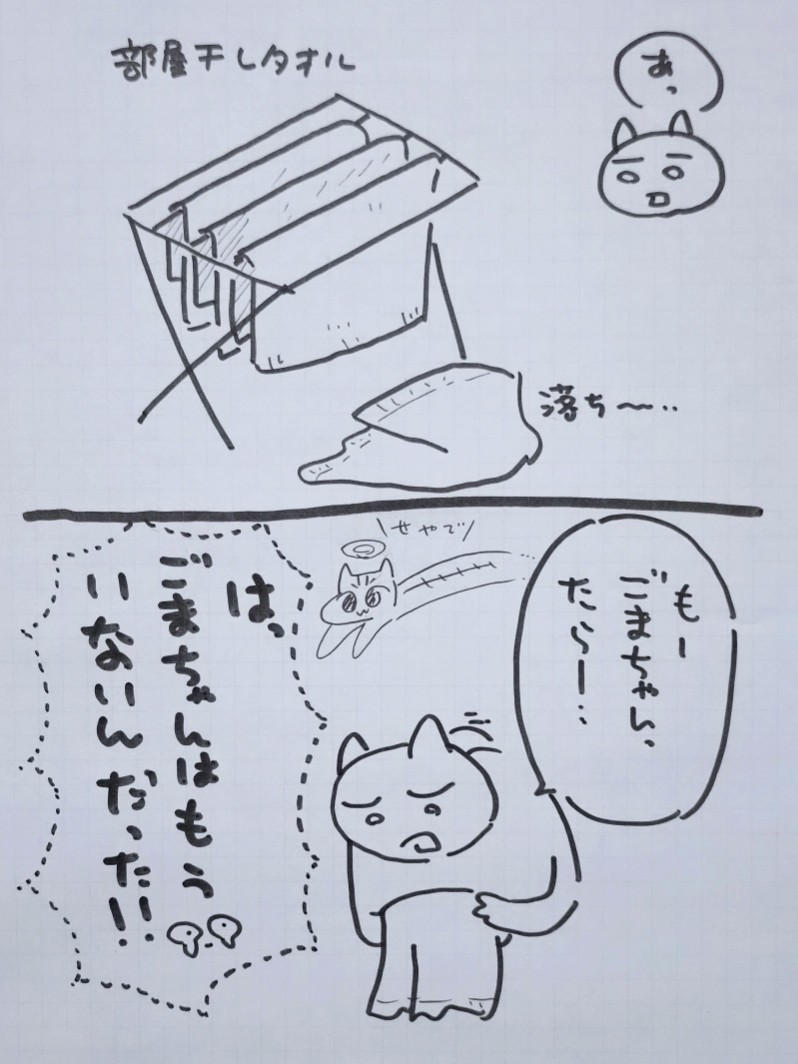 部屋干しタオル
あっ
落ち〜‥
もー
ごまちゃん、
たらー‥
せやで
はっ
ごまちゃんはもう
いないんだった!!